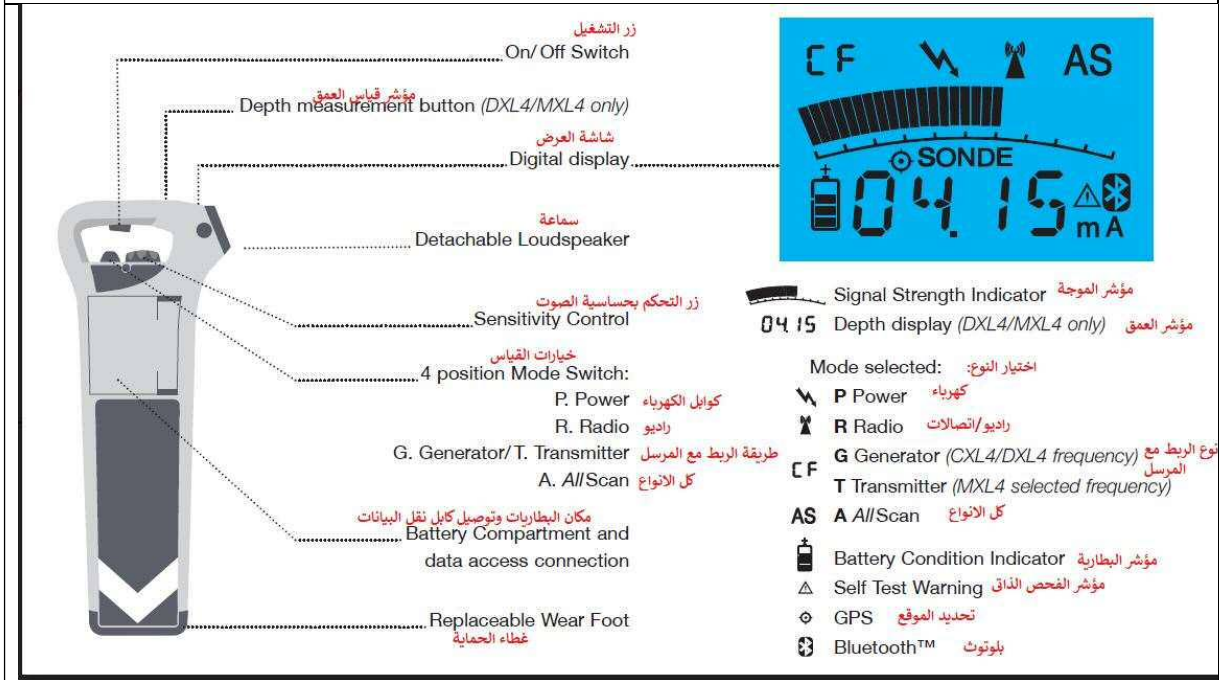 زر التشغيل
On/Off Switch
مؤشر قياس العمق
Depth measurement button (DXL4/MXL4 only)
شاشة العرض
Digital display
سماعة
Detachable Loudspeaker
زر التحكم بحساسية الصوت
Sensitivity Control
خيارات القياس
4 position Mode Switch:
P. Power كوابل الكهرباء
R. Radio راديو
G. Generator/T. Transmitter طريقة الربط مع المرسل
A. AllScan كل الانواع
مكان البطاريات وتوصيل كابل نقل البيانات
Battery Compartment and
data access connection
Replaceable Wear Foot
غطاء الحماية
CF AS
SONDE
04.15 mA
Signal Strength Indicator مؤشر الموجة
04.15 Depth display (DXL4/MXL4 only) مؤشر العمق
Mode selected: اختيار النوع:
P Power كهرباء
R Radio راديو/اتصالات
CF G Generator (CXL4/DXL4 frequency) نوع الربط مع
المرسل
T Transmitter (MXL4 selected frequency)
AS A AllScan كل الانواع
Battery Condition Indicator مؤشر البطارية
Self Test Warning مؤشر الفحص الذاتى
GPS تحديد الموقع
Bluetooth™ بلوتوث